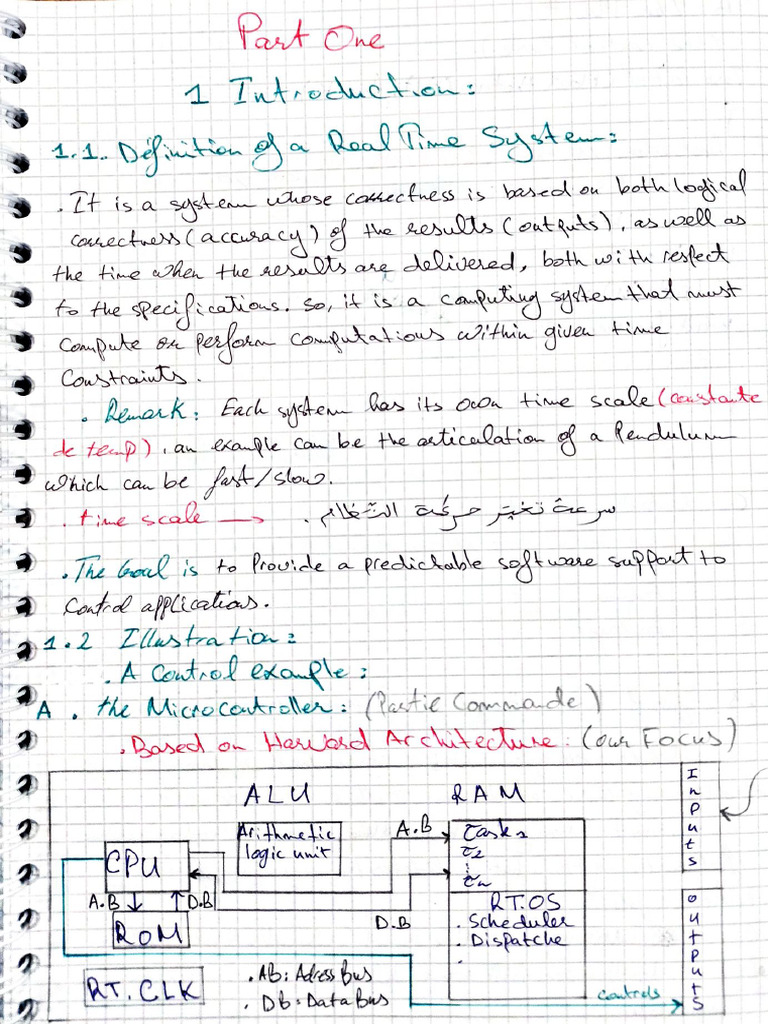 Part One
1 Introduction:
1.1. Définition of a Real Time System:
. It is a system whose correctness is based on both logical
correctness (accuracy) of the results (outputs), as well as
the time when the results are delivered, both with respect
to the specifications. So, it is a computing system that must
compute or perform computations within given time
constraints.
. Remark: Each system has its own time scale (constante
de temp), an example can be the articulation of a Pendulum
which can be fast/slow.
. time scale → . سرعة تغير حركة النظام
. The Goal is to Provide a predichable software support to
Control applications.
1.2 Illustration:
. A Control example:
A . the Microcontroller: (Partie Commande)
. Based on Harward Architecture: (our Focus)
ALU RAM
Inputs
Arithmetic
logic unit
A.B
Task1
τ2
⋮
τn
CPU
A.B ↓ ↑ D.B
ROM
D.B
RT.OS
. Scheduler
. Dispatche
.
outputs
RT.CLK
. AB: Adress Bus
. Db: Data Bus
controls